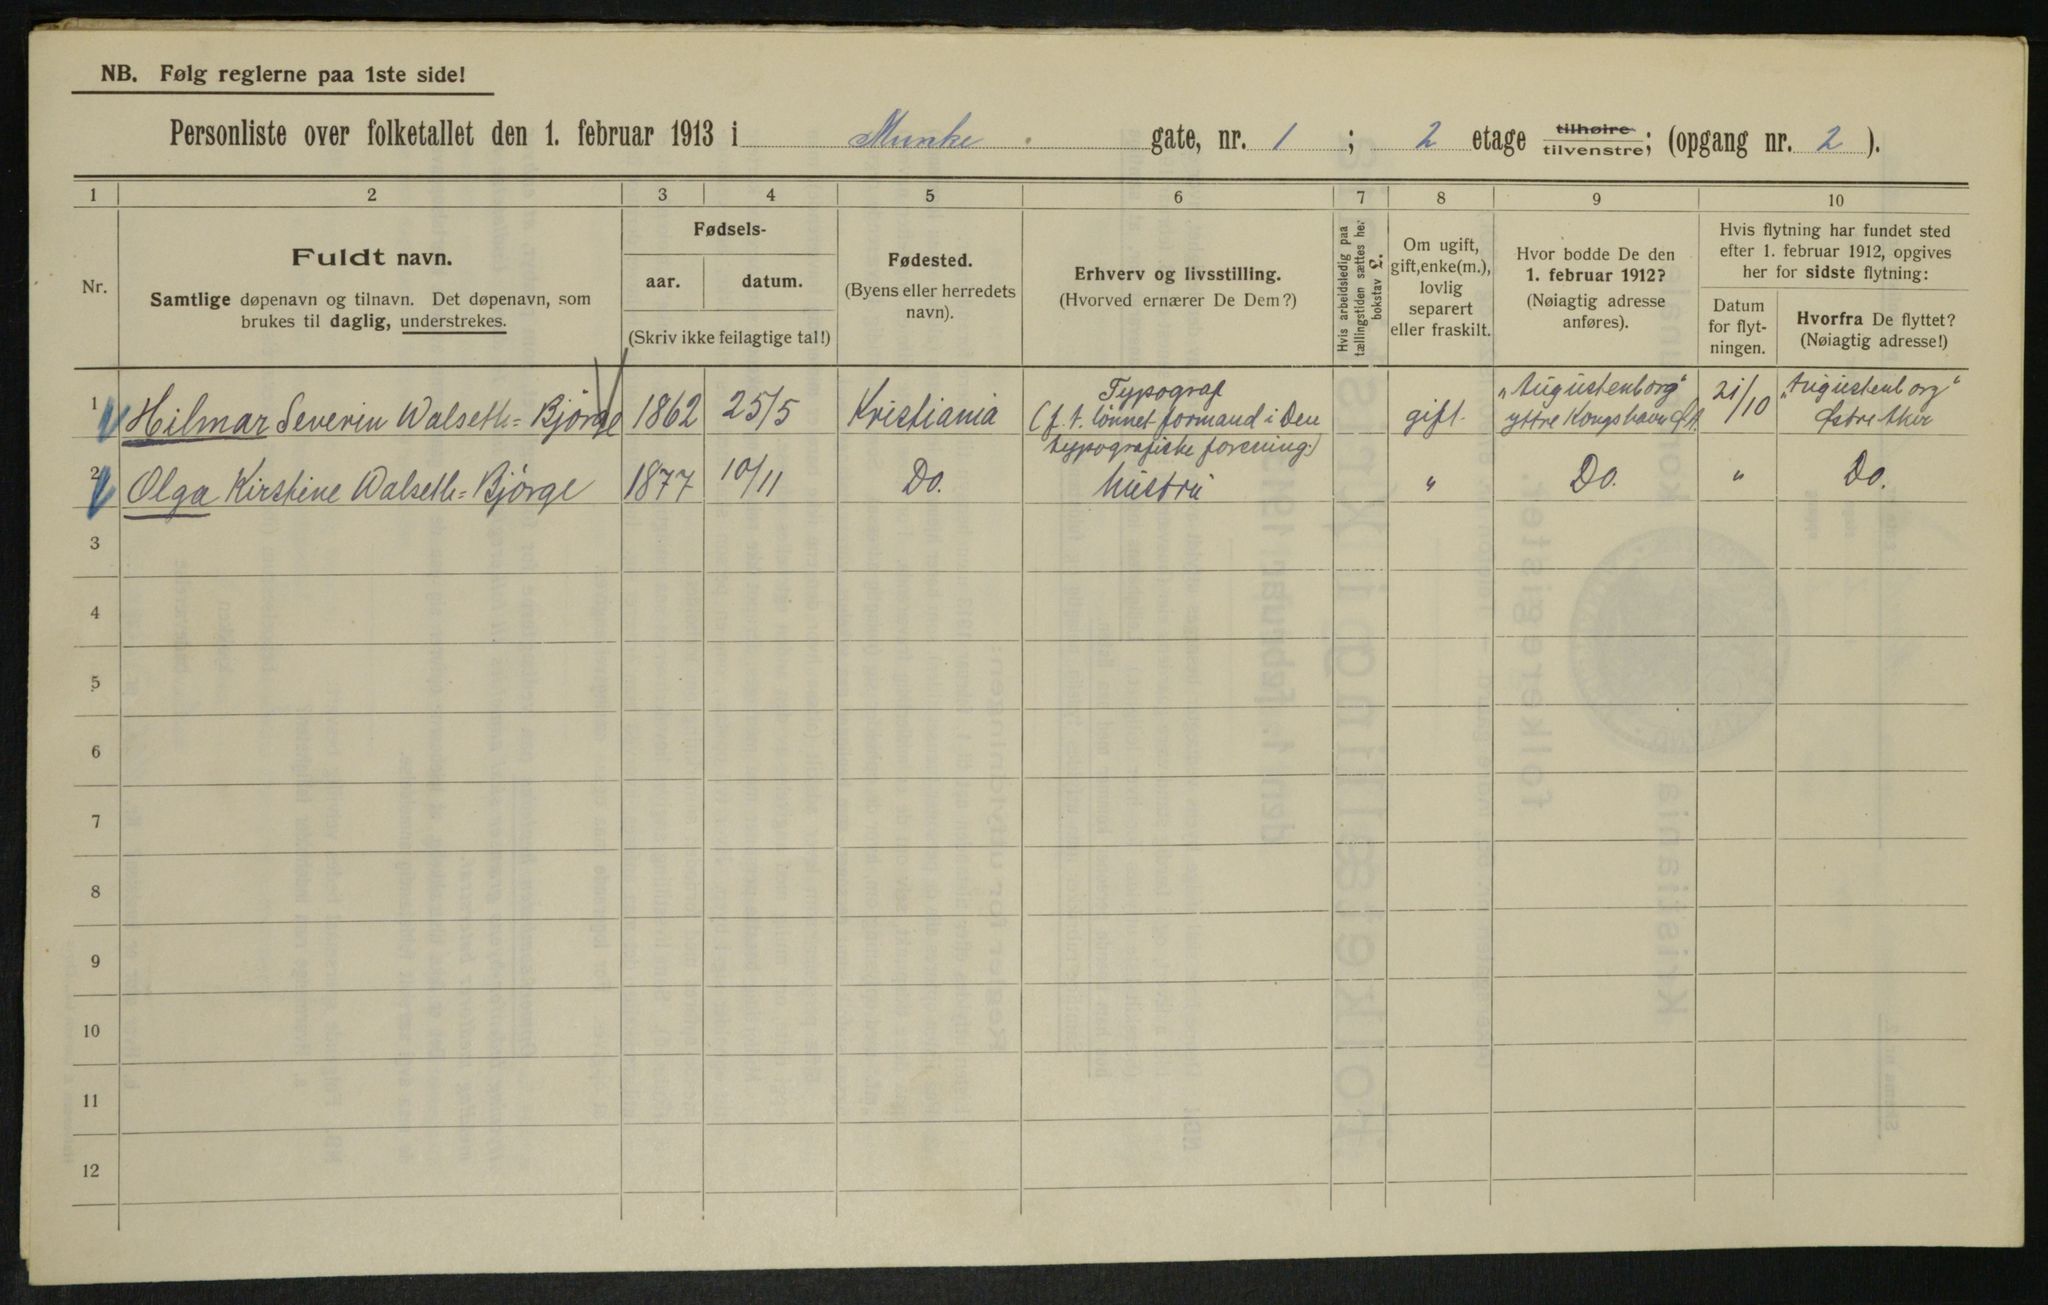 NB. Følg reglerne paa 1ste side!
Personliste over folketallet den 1. februar 1913 i Munke gate, nr. 1 ; 2 etage tilhøire tilvenstre; (opgang nr. 2 ).
1 2 3 4 5 6 7 8 9 10
Nr.
Fuldt navn.
Samtlige døpenavn og tilnavn. Det døpenavn, som
brukes til daglig, understrekes.
Fødsels-
aar. datum.
(Skriv ikke feilagtige tal!)
Fødested.
(Byens eller herredets
navn).
Erhverv og livsstilling.
(Hvorved ernærer De Dem?)
Hvis arbeidsledig paa
tællingstiden sættes her
bokstav L.
Om ugift,
gift, enke(m.),
lovlig
separert
eller fraskilt.
Hvor bodde De den
1. februar 1912?
(Nøiagtig adresse
anføres).
Hvis flytning har fundet sted
efter 1. februar 1912, opgives
her for sidste flytning:
Datum
for flyt-
ningen.
Hvorfra De flyttet?
(Nøiagtig adresse!)
1 Hilmar Severin Walseth=Bjørge 1862 25/5 Kristiania
Typograf
(f. t. lønnet formand i Den
typografiske forening.)
gift.
"Augustenborg"
ytre Kongshavn
21/10
"Augustenborg"
Østre Aker
2 Olga Kirstine Walseth=Bjørge 1877 10/11 Do. hustru " Do. " Do.
3
4
5
6
7
8
9
10
11
12